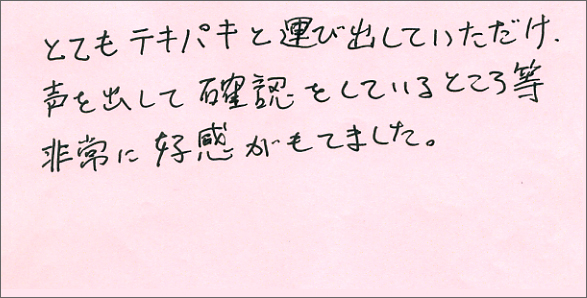 とてもテキパキと運び出していただけ、
声を出して確認をしているところ等
非常に好感がもてました。